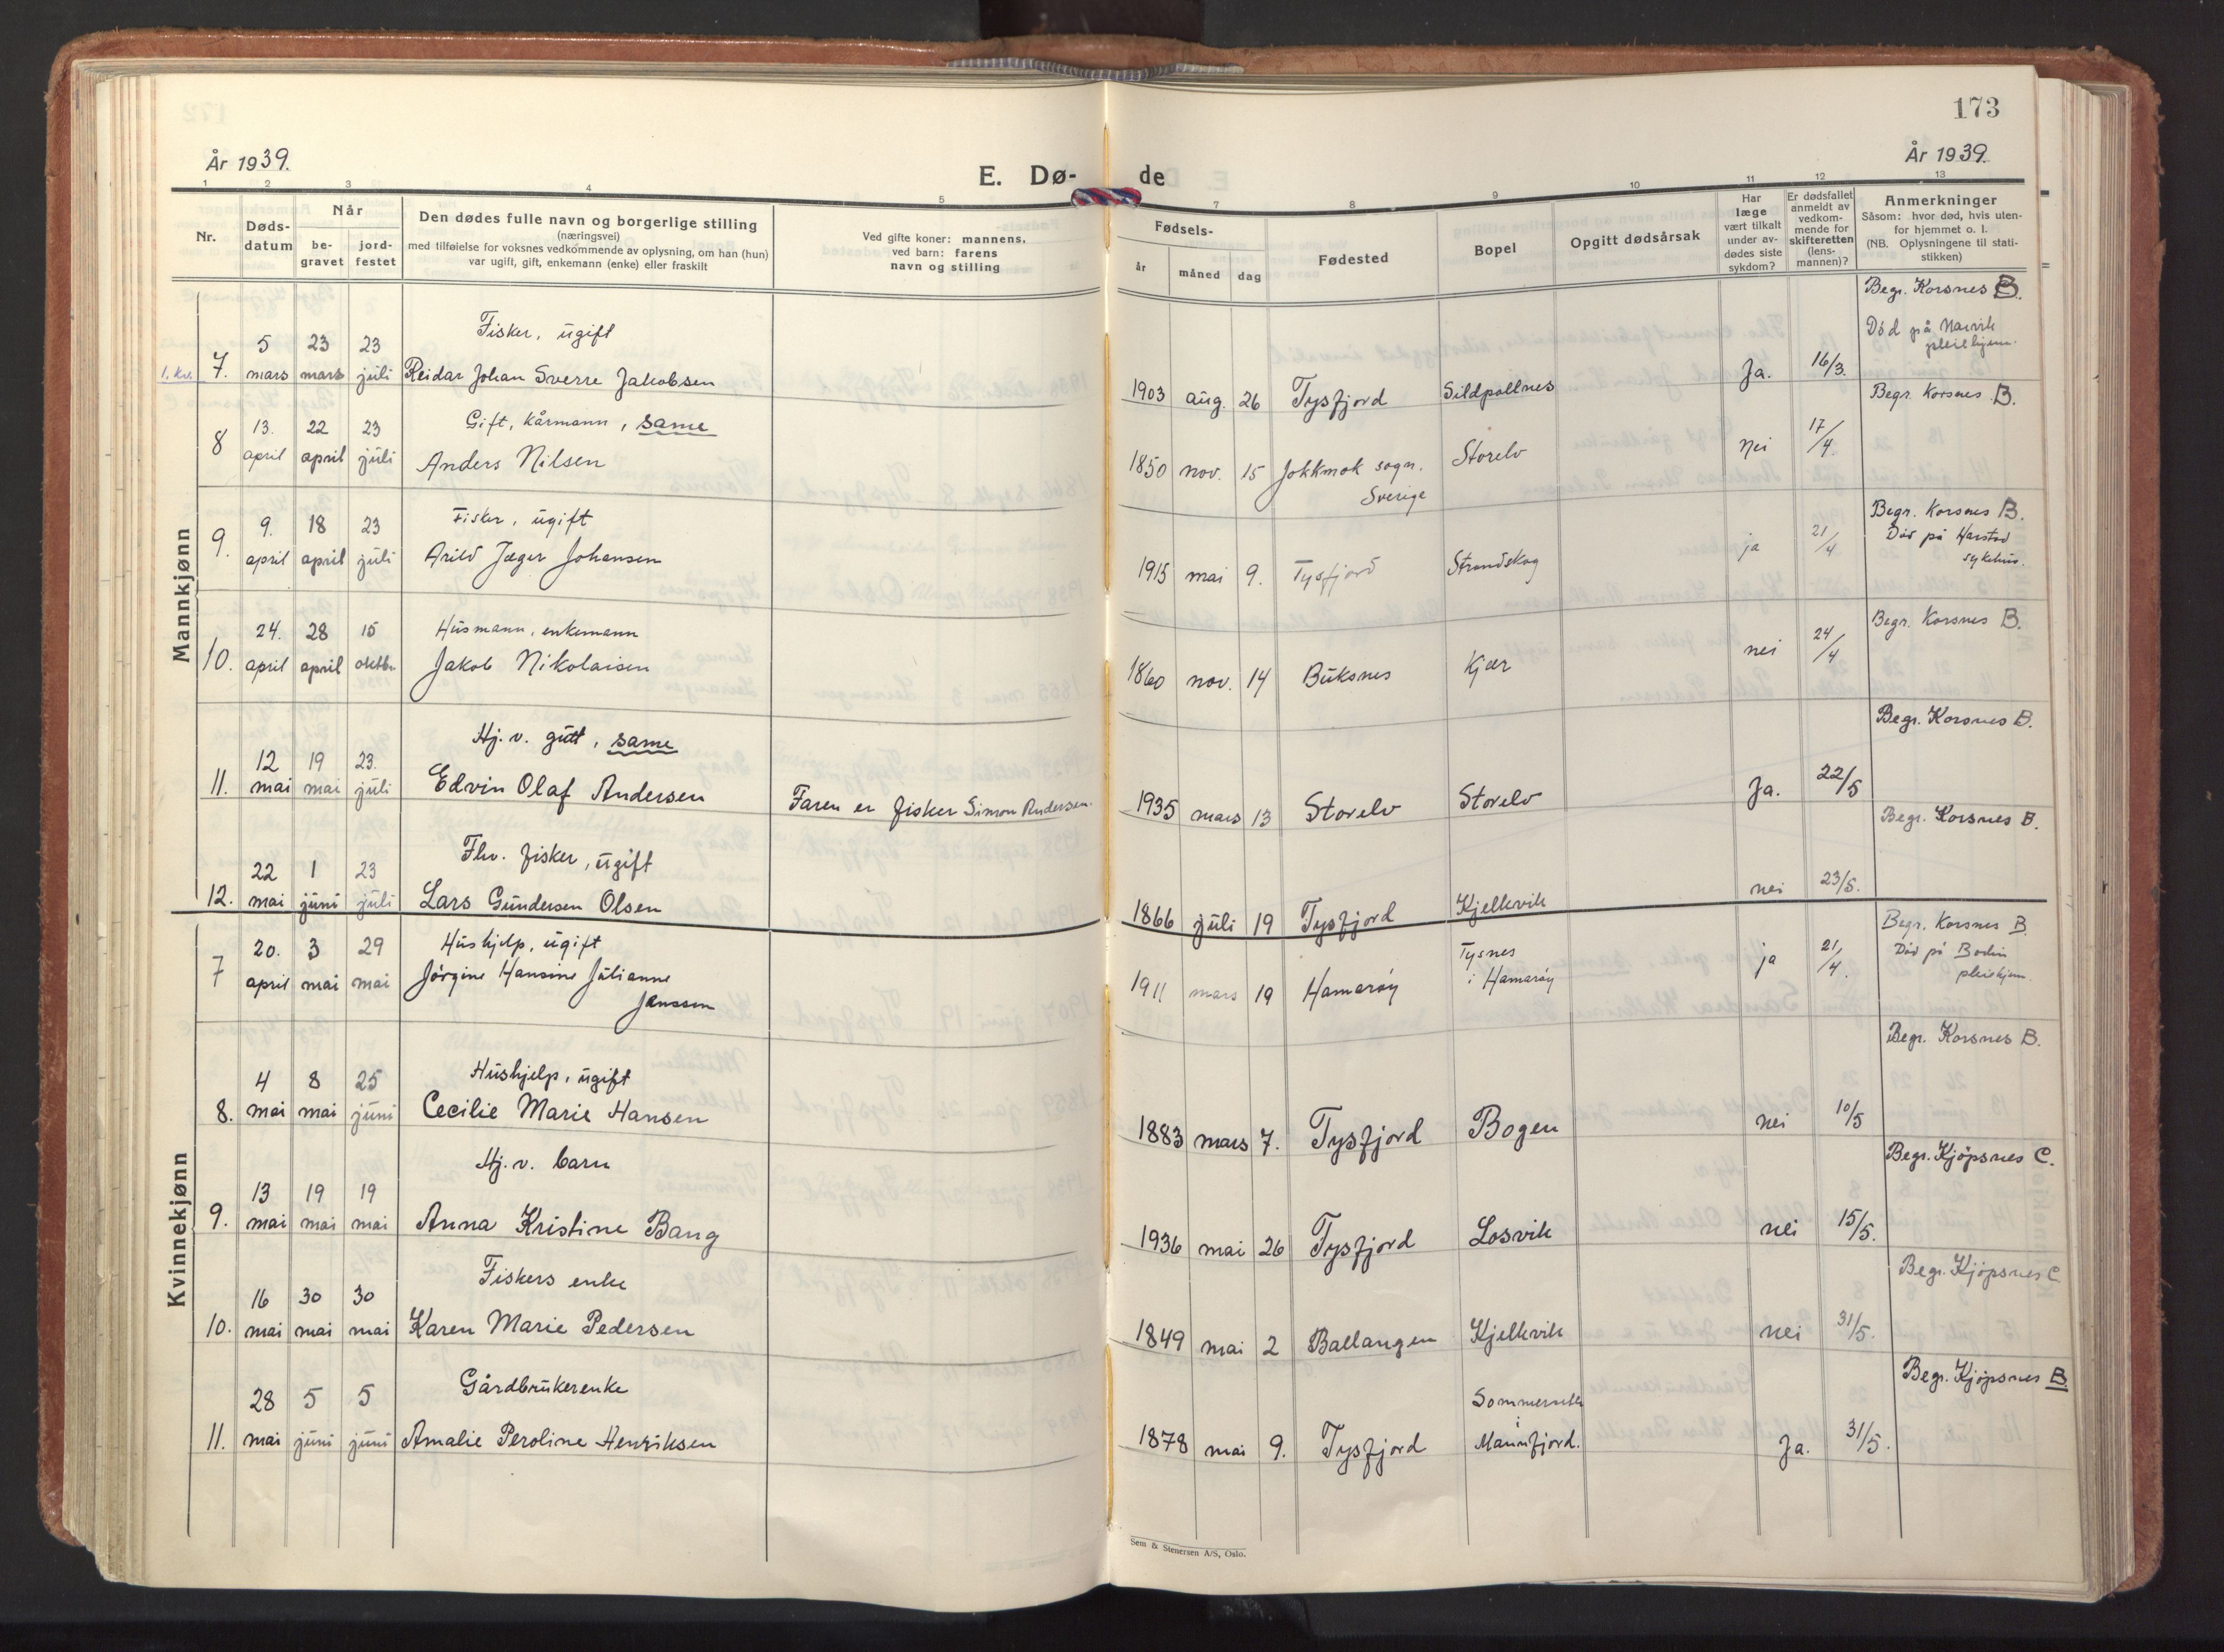 173
År 1939.
År 1939.
E. Dø-
de
1
2
3
4
5
7
8
9
10
11
12
13
Nr.
Døds-
datum
Når
be-
gravet
jord-
festet
Den dødes fulle navn og borgerlige stilling
(næringsvei)
med tilføielse for voksnes vedkommende av oplysning, om han (hun)
var ugift, gift, enkemann (enke) eller fraskilt
Ved gifte koner: mannens,
ved barn: farens
navn og stilling
Fødsels-
år
måned
dag
Fødested
Bopel
Opgitt dødsårsak
Har
læge
vært tilkalt
under av-
dødes siste
sykdom?
Er dødsfallet
anmeldt av
vedkom-
mende for
skifteretten
(lens-
mannen)?
Anmerkninger
Såsom: hvor død, hvis uten-
for hjemmet o. l.
(NB. Oplysningene til stati-
stikken)
Mannkjønn
Begr. Korsnes B.
5 23 23 Fisker, ugift
Død på Narvik
pleiehjem.
7. mars mars juli Reidar Johan Sverre Jakobsen 1903 aug. 26 Tysfjord Sildpollnes Ja. 16/3.
Begr. Korsnes B.
13. 22 23 Gift, kårmann, same
8 april april juli Anders Nilsen 1850 nov. 15 Jokkmok sogn. Storelv nei 17/4.
Sverige
Begr. Korsnes B.
9. 18 23 Fisker, ugift
Død på Harstad
sykehus.
9. april april juli Arild Jæger Johansen 1915 mai 9. Tysfjord Strandskog ja 21/4
Begr. Korsnes B.
24. 28 15 Husmann, enkemann
10. april april oktbr. Jakob Nikolaisen 1860 nov. 14 Buksnes Kjær nei 24/4
Begr. Korsnes B.
12 19 23. Hj. v. gutt, same
11. mai mai juli Edvin Olaf Andersen Faren er fisker Simon Andersen. 1935 mars 13 Storelv Storelv Ja. 22/5
Begr. Korsnes B.
22 1 23 Fhv. fisker, ugift
12. mai juni juli Lars Gundersen Olsen 1866 juli 19 Tysfjord Kjelkvik nei 23/5.
Kvinnekjønn
Begr. Korsnes B.
20. 3 29 Hushjelp, ugift Tysnes
Død på Bodin
pleiehjem
7 april mai mai Jörgine Hansine Julianne 1911 mars 19 Hamarøy i Hamarøy ja 21/4.
Janssen
Begr. Korsnes B.
4 8 25 Hushjelp, ugift
8. mai mai juni Cecilie Marie Hansen 1883 mars 7. Tysfjord Bogen nei 10/5
Begr. Kjöpsnes C.
13 19 19 Hj. v. barn
9. mai mai mai Anna Kristine Bang 1936 mai 26 Tysfjord Losvik nei 15/5.
Begr. Kjöpsnes C
16 30 30 Fiskers enke
10. mai mai mai Karen Marie Pedersen 1849 mai 2 Ballangen Kjelkvik nei 31/5.
Begr. Kjöpsnes B
28 5 5 Gårdbrukerenke Sommersetb
i
11. mai juni juni Amalie Peroline Henriksen 1878 mai 9. Tysfjord Mannfjord. Ja. 31/5.
Sem & Stenersen A/S, Oslo.